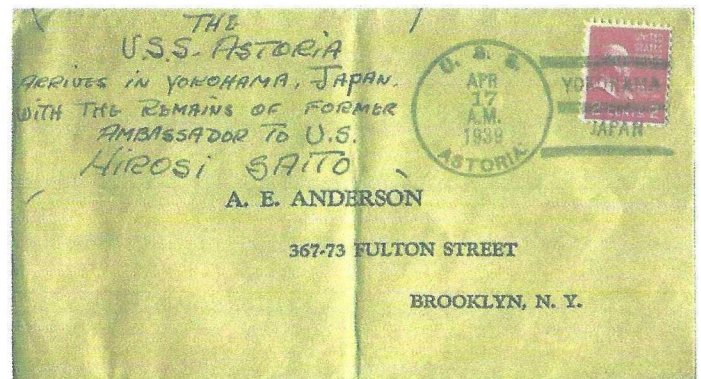 THE
U.S.S. ASTORIA
ARRIVES IN YOKOHAMA, JAPAN.
WITH THE REMAINS OF FORMER
AMBASSADOR TO U.S.
HIROSI SAITO
U. S. S.
APR
17
A.M.
1939
ASTORIA
YOKOHAMA
JAPAN
UNITED
STATES
A. E. ANDERSON
367-73 FULTON STREET
BROOKLYN, N. Y.